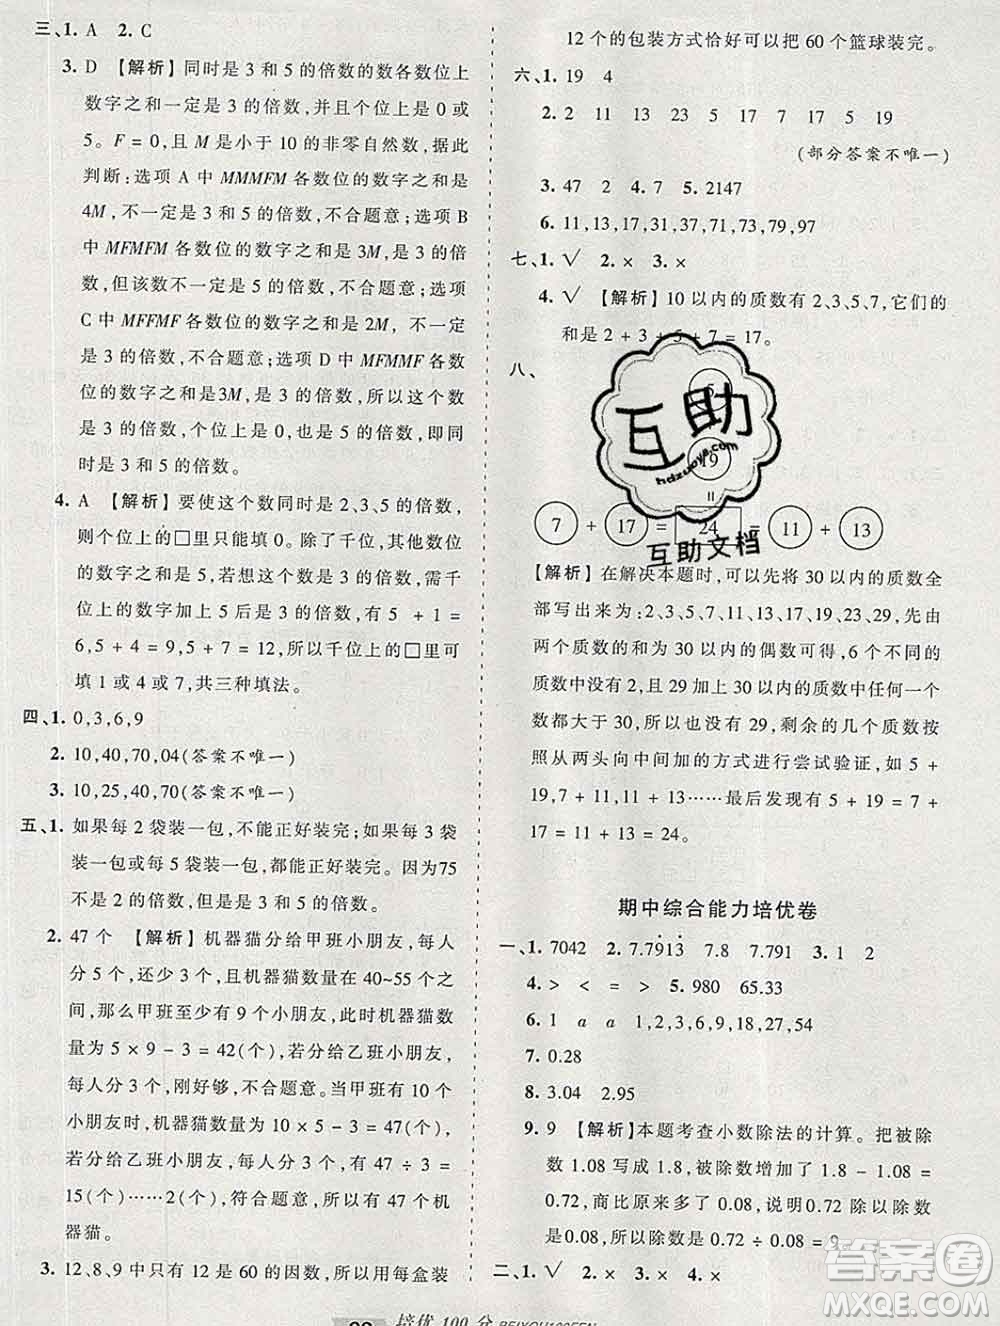 三、1. A　2. C
3. D　【解析】同时是 3 和 5 的倍数的数各数位上
数字之和一定是 3 的倍数，并且个位上是 0 或
5。F = 0，这里 M 是小于 10 的非零自然数，据此
判断：选项 A 中 MMMFM 各数位的数字之和是
4M，不一定是 3 和 5 的倍数，不合题意；选项 B
中 MFMFM 各数位的数字之和是3M，是 3 的倍
数，但该数不一定是 5 的倍数，不合题意；选项
C 中 MFFMF 各数位的数字之和是2M，不一定
是 3 的倍数，不合题意；选项 D 中 MFMMF 各数
位的数字之和是3M，是 3 的倍数，个位数字是
0，是 5 的倍数，所以该数是 3 和 5 的倍数，即同
时是 3 和 5 的倍数。
4. A　【解析】要使这个数同时是 2、3、5 的倍数，
则个位上的□里只能填 0。除了千位，其他数位
的数字之和是 5，若想这个数是 3 的倍数，需千
位上的数字加上 5 后是 3 的倍数，有 5 + 1 =
6,5 + 4 = 9,5 + 7 = 12，所以千位上的□里可
填 1 或 4 或 7，共三种填法。
四、1. 0,3,6,9
2. 10,40,70,04(答案不唯一)
3. 10,25,40,70(答案不唯一)
五、1. 如果每 2 袋装一包，不能正好装完；如果每 3 袋
装一包或每 5 袋装一包，都能正好装完。因为75
不是 2 的倍数，是 3 和 5 的倍数。
2. 47 个　【解析】机器猫分给甲班小朋友，每人
分 5 个，还少 3 个，且机器猫数量在 40~55 个之
间，那么甲班至少有 9 个小朋友，此时机器猫数
量为 5 × 9 - 3 = 42(个)，若分给乙班小朋友，
每人分 3 个，刚好够，不合题意。当甲班有 10 个
小朋友时，机器猫数量为 10 × 5 - 3 = 47(个)，
若分给乙班小朋友，每人分 3 个，有 47 ÷ 3 =
15(个)……2(个)，符合题意，所以有 47 个机
器猫。
3. 12、8、9 中只有 12 是 60 的因数，所以用每盒装
12 个的包装方式恰好可以把 60 个篮球装完。
六、1. 19　4
2. 2　11　13　23　5　17　7　17　5　19
(部分答案不唯一)
3. 47　2　4. 7　5. 2147
6. 11,13,17,31,37,71,73,79,97
七、1. √　2. ×　3. ×
4. √　【解析】10 以内的质数有 2、3、5、7，它们的
和是 2 + 3 + 5 + 7 = 17。
八、
5
19
=
7 + 17 = 24 = 11 + 13
【解析】在解决本题时，可以先将 30 以内的质数全
部写出来为：2、3、5、7、11、13、17、19、23、29，先由
两个质数的和为 30 以内的偶数可知，6 个圆圈里的
质数中没有 2，又 4 个 30 以内的质数中任何一个
数都大于 30，所以也没有 29，剩余的几个质数按
照从两头向中间加的方式进行尝试验证，如 5 +
19,7 + 17,11 + 13……最后发现有 5 + 19 = 7 +
17 = 11 + 13 = 24，据此填数。
期中综合能力培优卷
一、1. 7042　2. 7.7̇91̇3̇　7.8　7.791　3. 1　2
4. >　<　=　>　5. 980　65.33
6. 1　a　a　1,2,3,6,9,18,27,54
7. 0.28
8. 3.04　2.95
9. 9　【解析】本题考查小数除法的计算。把被除
数 1.08 写成 1.8，被除数增加了 1.8 - 1.08 =
0.72，商比原来多了 0.08，说明0.72 除以除数
是0.08，所以除数是 0.72 ÷ 0.08 = 9。
二、1. √　2. ×　3. ×　4. ×
培优 100 分
互助
hdzuoye.com
互助文档
答案圈
MXQE.COM